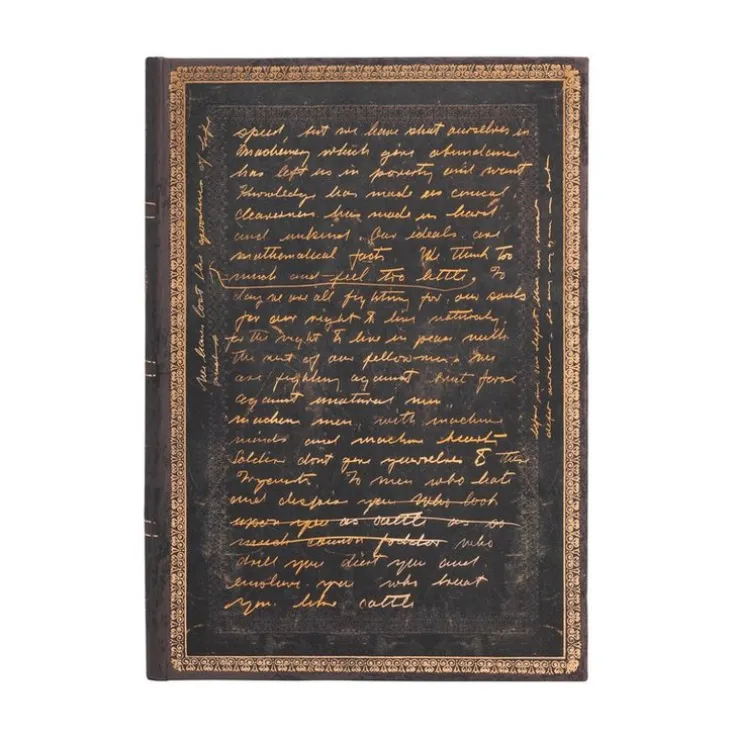 speed, but we have shut ourselves in
Machinery which gives abundance
has left us in poverty and want
Knowledge has made us cynical
cleverness has made us hard
and unkind. Our ideals are
mathematical facts. We think too
much and feel too little. To
day we are all fighting for our souls
for our right to live naturally,
for the right to live in peace with
the rest of our fellowmen. We
are fighting against brut force
against unatural men
machine men with machine
minds and machine hearts
Soldiers dont give yourselves to these
To men who hate
and despise you who look
upon you as cattle as so
much cannon fodder who
drill you diet you and
enslave you who treat
you like cattle
We have lost the goodness of life